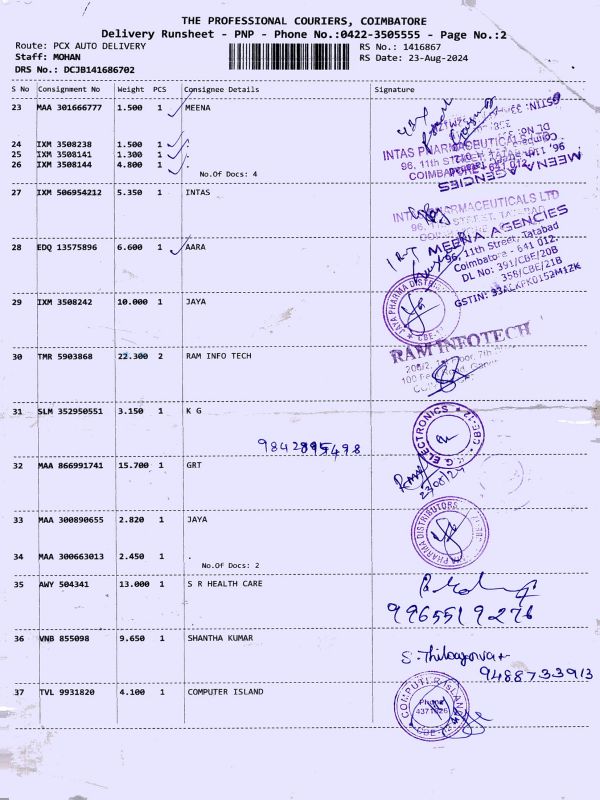 THE PROFESSIONAL COURIERS, COIMBATORE
Delivery Runsheet - PNP - Phone No.:0422-3505555 - Page No.:2
Route: PCX AUTO DELIVERY RS No.: 1416867
Staff: MOHAN RS Date: 23-Aug-2024
DRS No.: DCJB141686702
S No Consignment No Weight PCS Consignee Details Signature
23 MAA 301666777 1.500 1 MEENA
24 IXM 3508238 1.500 1 .
25 IXM 3508141 1.300 1 .
26 IXM 3508144 4.800 1 .
No.Of Docs: 4
INTAS PHARMACEUTICALS
96, 11th STREET, TATABAD
COIMBATORE
MEENA AGENCIES
27 IXM 506954212 5.350 1 INTAS
INTAS PHARMACEUTICALS LTD
28 EDQ 13575896 6.600 1 AARA
MEENA AGENCIES
96, 11th Street, Tatabad
Coimbatore - 641 012.
DL No: 391/CBE/20B
358/CBE/21B
GSTIN: 33ALKPK0152M1ZK
29 IXM 3508242 10.000 1 JAYA
JAYA PHARMA DISTRIBUTORS
30 TMR 5903868 22.300 2 RAM INFO TECH
RAM INFOTECH
31 SLM 352950551 3.150 1 K G
K G ELECTRONICS CBE-12
9842895498
32 MAA 866991741 15.700 1 GRT
23/08/24
33 MAA 300890655 2.820 1 JAYA
JAYA PHARMA DISTRIBUTORS
34 MAA 300663013 2.450 1 .
No.Of Docs: 2
35 AWY 504341 13.000 1 S R HEALTH CARE
9965519276
36 VNB 855098 9.650 1 SHANTHA KUMAR
9488733913
37 TVL 9931820 4.100 1 COMPUTER ISLAND
COMPUTER ISLAND
Phone